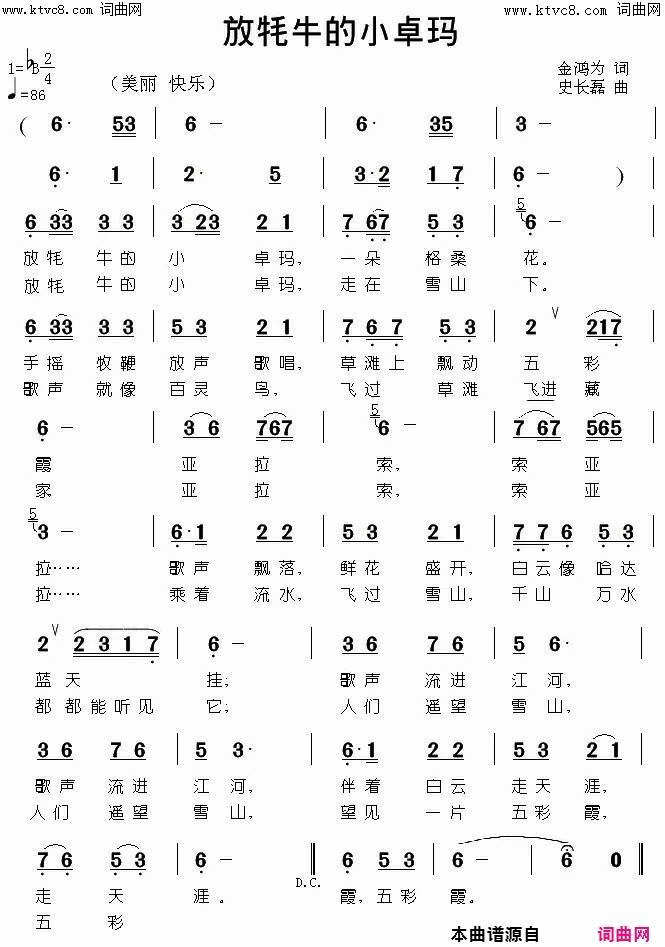 www.ktvc8.com 词曲网 www.ktvc8.com 词曲网
放牦牛的小卓玛
1=♭B 2/4
♩=86 （美丽 快乐） 金鸿为 词
史长磊 曲
( 6· 53 | 6 － | 6· 35 | 3 － |
6· 1 | 2· 5 | 3·2 1 7 | 6· － ) |
6 33 3 3 | 3 23 2 1 | 7 67 5 3 | 5 6· － |
放牦 牛的 小 卓玛, 一朵 格桑 花。
放牦 牛的 小 卓玛, 走在 雪山 下。
6 33 3 3 | 5 3 2 1 | 7 6 7 5 3 | 2 ∨ 217 |
手摇 牧鞭 放声 歌唱, 草滩上 飘动 五 彩
歌声 就像 百灵 鸟, 飞过 草滩 飞进 藏
6· － | 3 6 767 | 5 6 － | 7 67 565 |
霞 亚 拉 索, 索 亚
家 亚 拉 索, 索 亚
5 3 － | 6·1 2 2 | 3 6 7 6 | 7 7 6 5 3 |
拉…… 歌声 飘落, 鲜花 盛开, 白云像 哈达
拉…… 乘着 流水, 飞过 雪山, 千山 万水
2 ∨ 2 3 1 7 | 6 － | 3 6 7 6 | 5 6· |
蓝天 挂; 歌声 流进 江河,
都 都能听见 它; 人们 遥望 雪山,
3 6 7 6 | 5 3· | 6·1 2 2 | 5 3 2 1 |
歌声 流进 江河, 伴着 白云 走天 涯,
人们 遥望 雪山, 望见 一片 五彩 霞,
7 6 5 3 | 6 － ‖ 6 5 3 | 6 － | 6 0 ‖
D.C.
走 天 涯。 霞,五彩 霞。
五 彩
本曲谱源自 词曲网